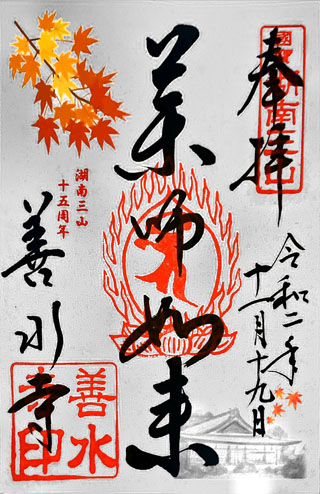 奉拝
令和二年
十一月十九日
薬師如来
湖南三山
十五周年
善水寺
善水